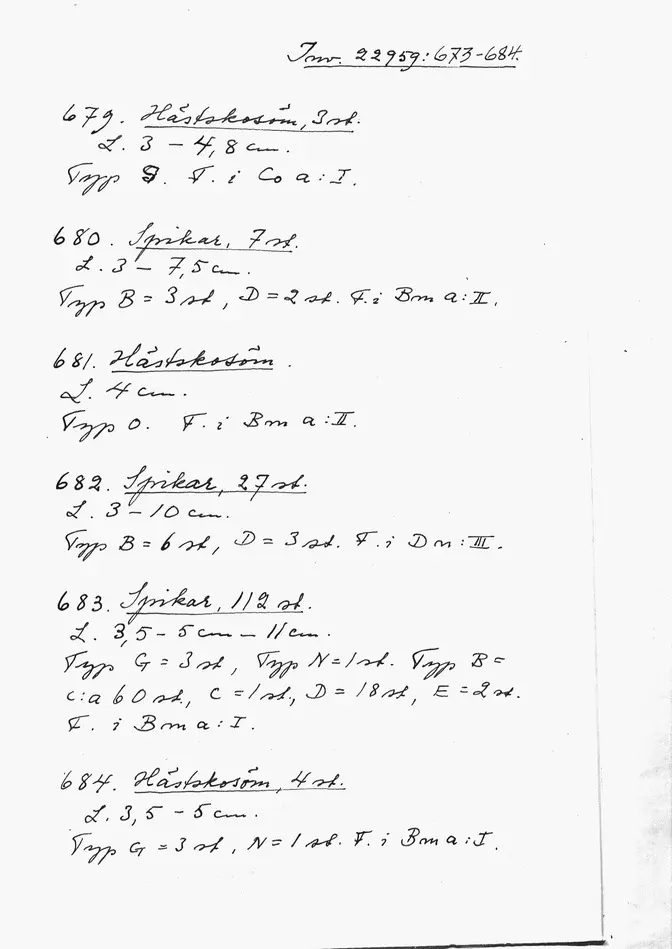 Inv. 22959:673-684.
679. Hästskosöm, 3 st.
L. 3 - 4,8 cm.
Typ G. F. i Co a:I.
680. Spikar, 7 st.
L. 3 - 7,5 cm.
Typ B = 3 st, D = 2 st. F. i Bm a:II.
681. Hästskosöm.
L. 4 cm.
Typ O. F. i Bm a:II.
682. Spikar, 27 st.
L. 3 - 10 cm.
Typ B = 6 st, D = 3 st. F. i Dn:III.
683. Spikar, 112 st.
L. 3,5 - 5 cm - 11 cm.
Typ G = 3 st, Typ N = 1 st. Typ B =
c:a 60 st, C = 1 st, D = 18 st, E = 2 st.
F. i Bm a:I.
684. Hästskosöm, 4 st.
L. 3,5 - 5 cm.
Typ G = 3 st, N = 1 st. F. i Bm a:I.